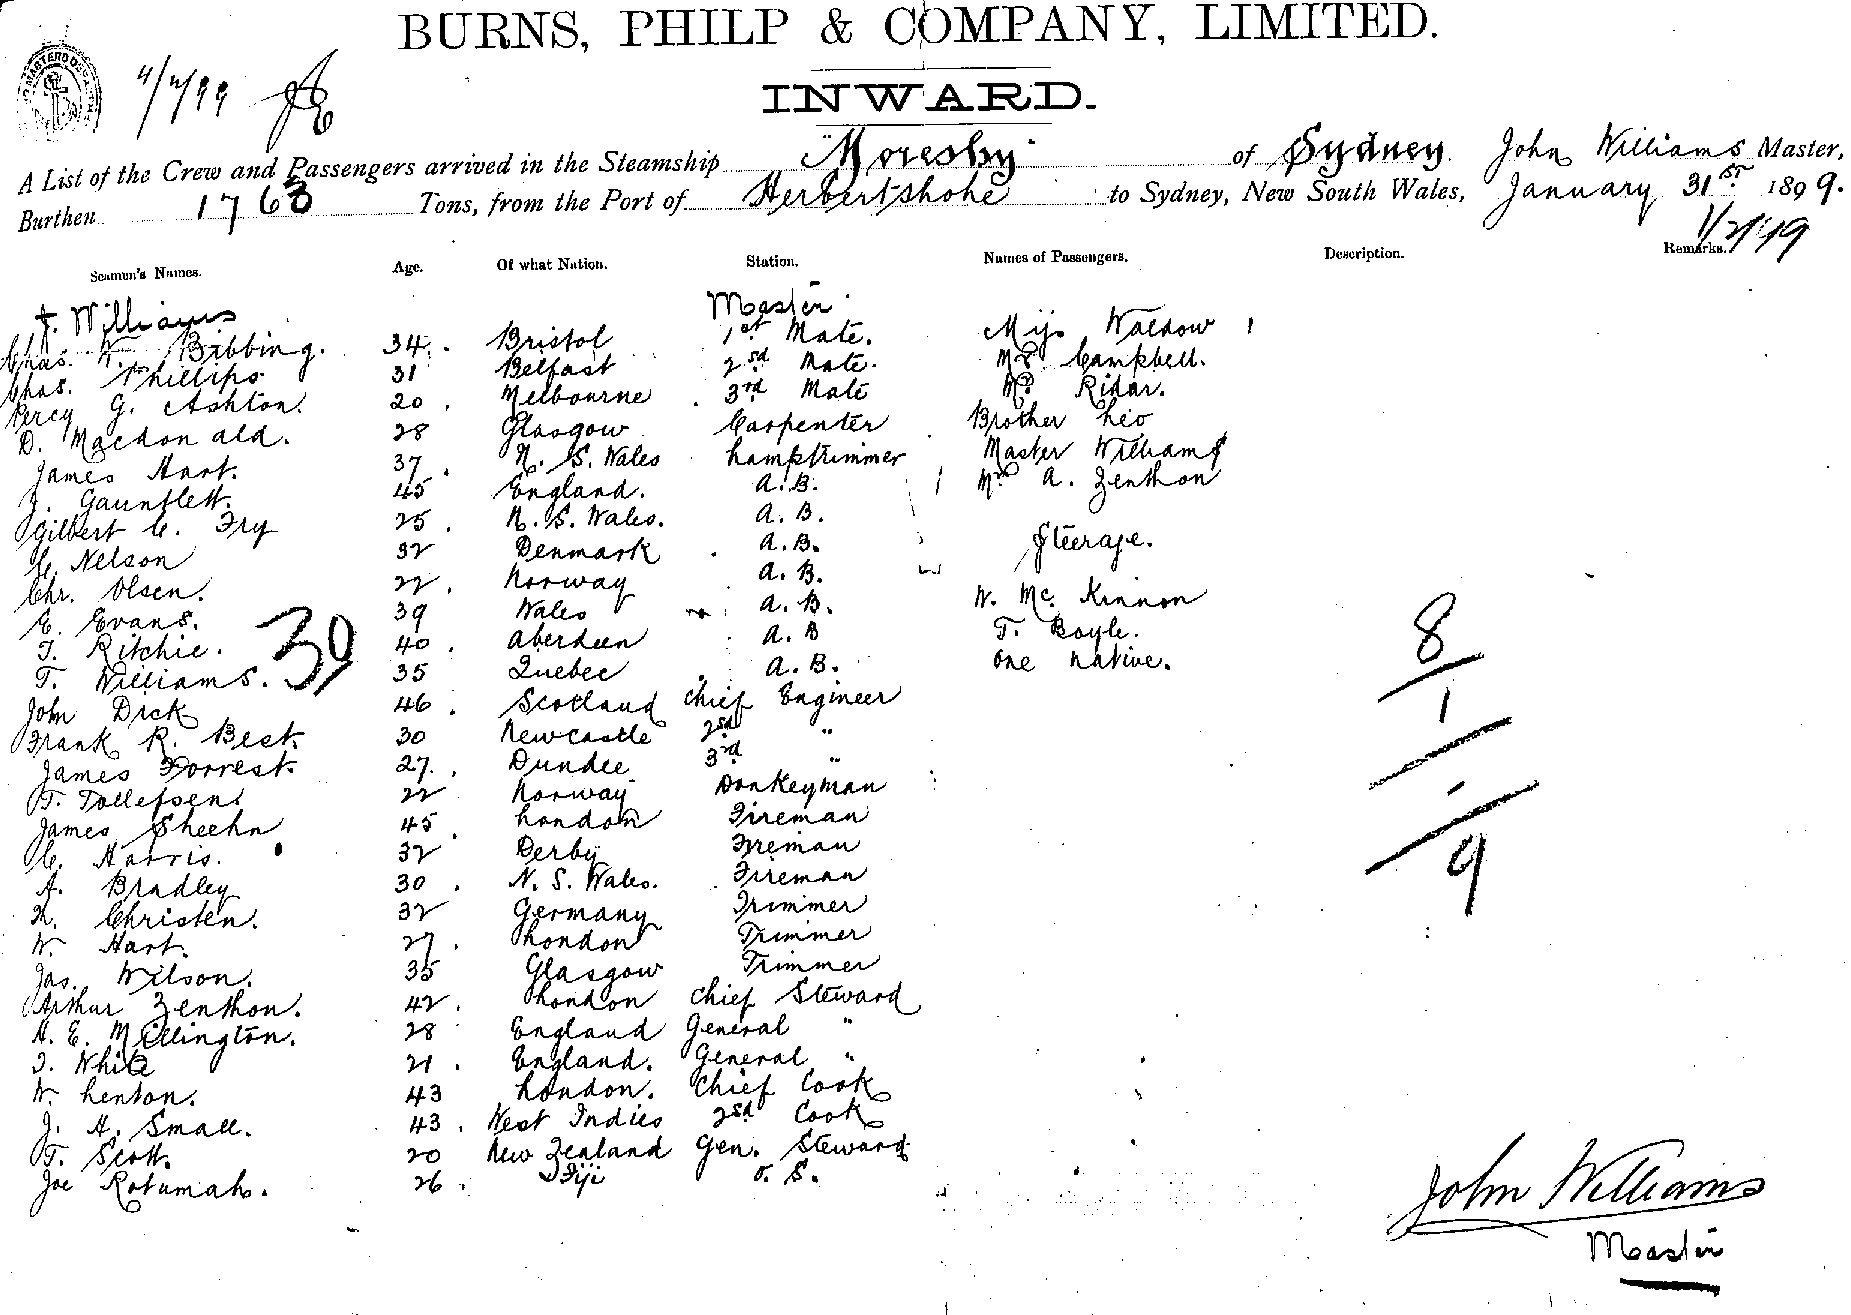 BURNS, PHILP & COMPANY, LIMITED.
INWARD.
A List of the Crew and Passengers arrived in the Steamship "Moresby" of Sydney. John Williams Master,
Burthen 1763 Tons, from the Port of Herbertshohe to Sydney, New South Wales, January 31st 1899.
1/2/99
Seamen's Names. Age. Of what Nation. Station. Names of Passengers. Description. Remarks.
J. Williams Master
Chas. W. Bibbing. 34. Bristol 1st Mate. Waldow 1
Chas. Phillips 31 Belfast 2nd Mate. Mr Campbell.
Percy G. Ashton. 20. Melbourne 3rd Mate Mr Ridar.
D. Macdonald. 28 Glasgow Carpenter Brother Leo
James Hart. 37. N. S. Wales Lamptrimmer Master Williams
J. Gauntlett. 45 England. A.B. Mrs A. Zenthon
Gilbert C. Fry 25. N. S. Wales. A.B.
C. Nelson 32 Denmark A.B. Steerage.
Chr. Olsen. 22. Norway A.B.
E. Evans. 39 Wales A.B. W. McKinnon
T. Ritchie. 40. Aberdeen A.B T. Boyle.
T. Williams. 35 Quebec A.B. One Native.
39
8
1
9
John Dick 46. Scotland Chief Engineer
Frank R. Best. 30 Newcastle 2nd "
James Forrest. 27. Dundee 3rd "
T. Tollefsen. 22 Norway Donkeyman
James Sheehn 45. London Fireman
C. Harris. 32 Derby Fireman
A. Bradley 30. N. S. Wales. Fireman
Christen. 32 Germany Trimmer
W. Hart. 27. London Trimmer
Jas. Wilson. 35 Glasgow Trimmer
Arthur Zenthon. 42. London Chief Steward
A. E. Millington. 28 England General "
T. White 21. England. General "
W. Lenton. 43 London. Chief Cook
J. A. Small. 43. West Indies 2nd Cook
T. Scott. 20 New Zealand Gen. Steward
Joe Rotumah. 26. Fiji O. S.
John Williams
Master